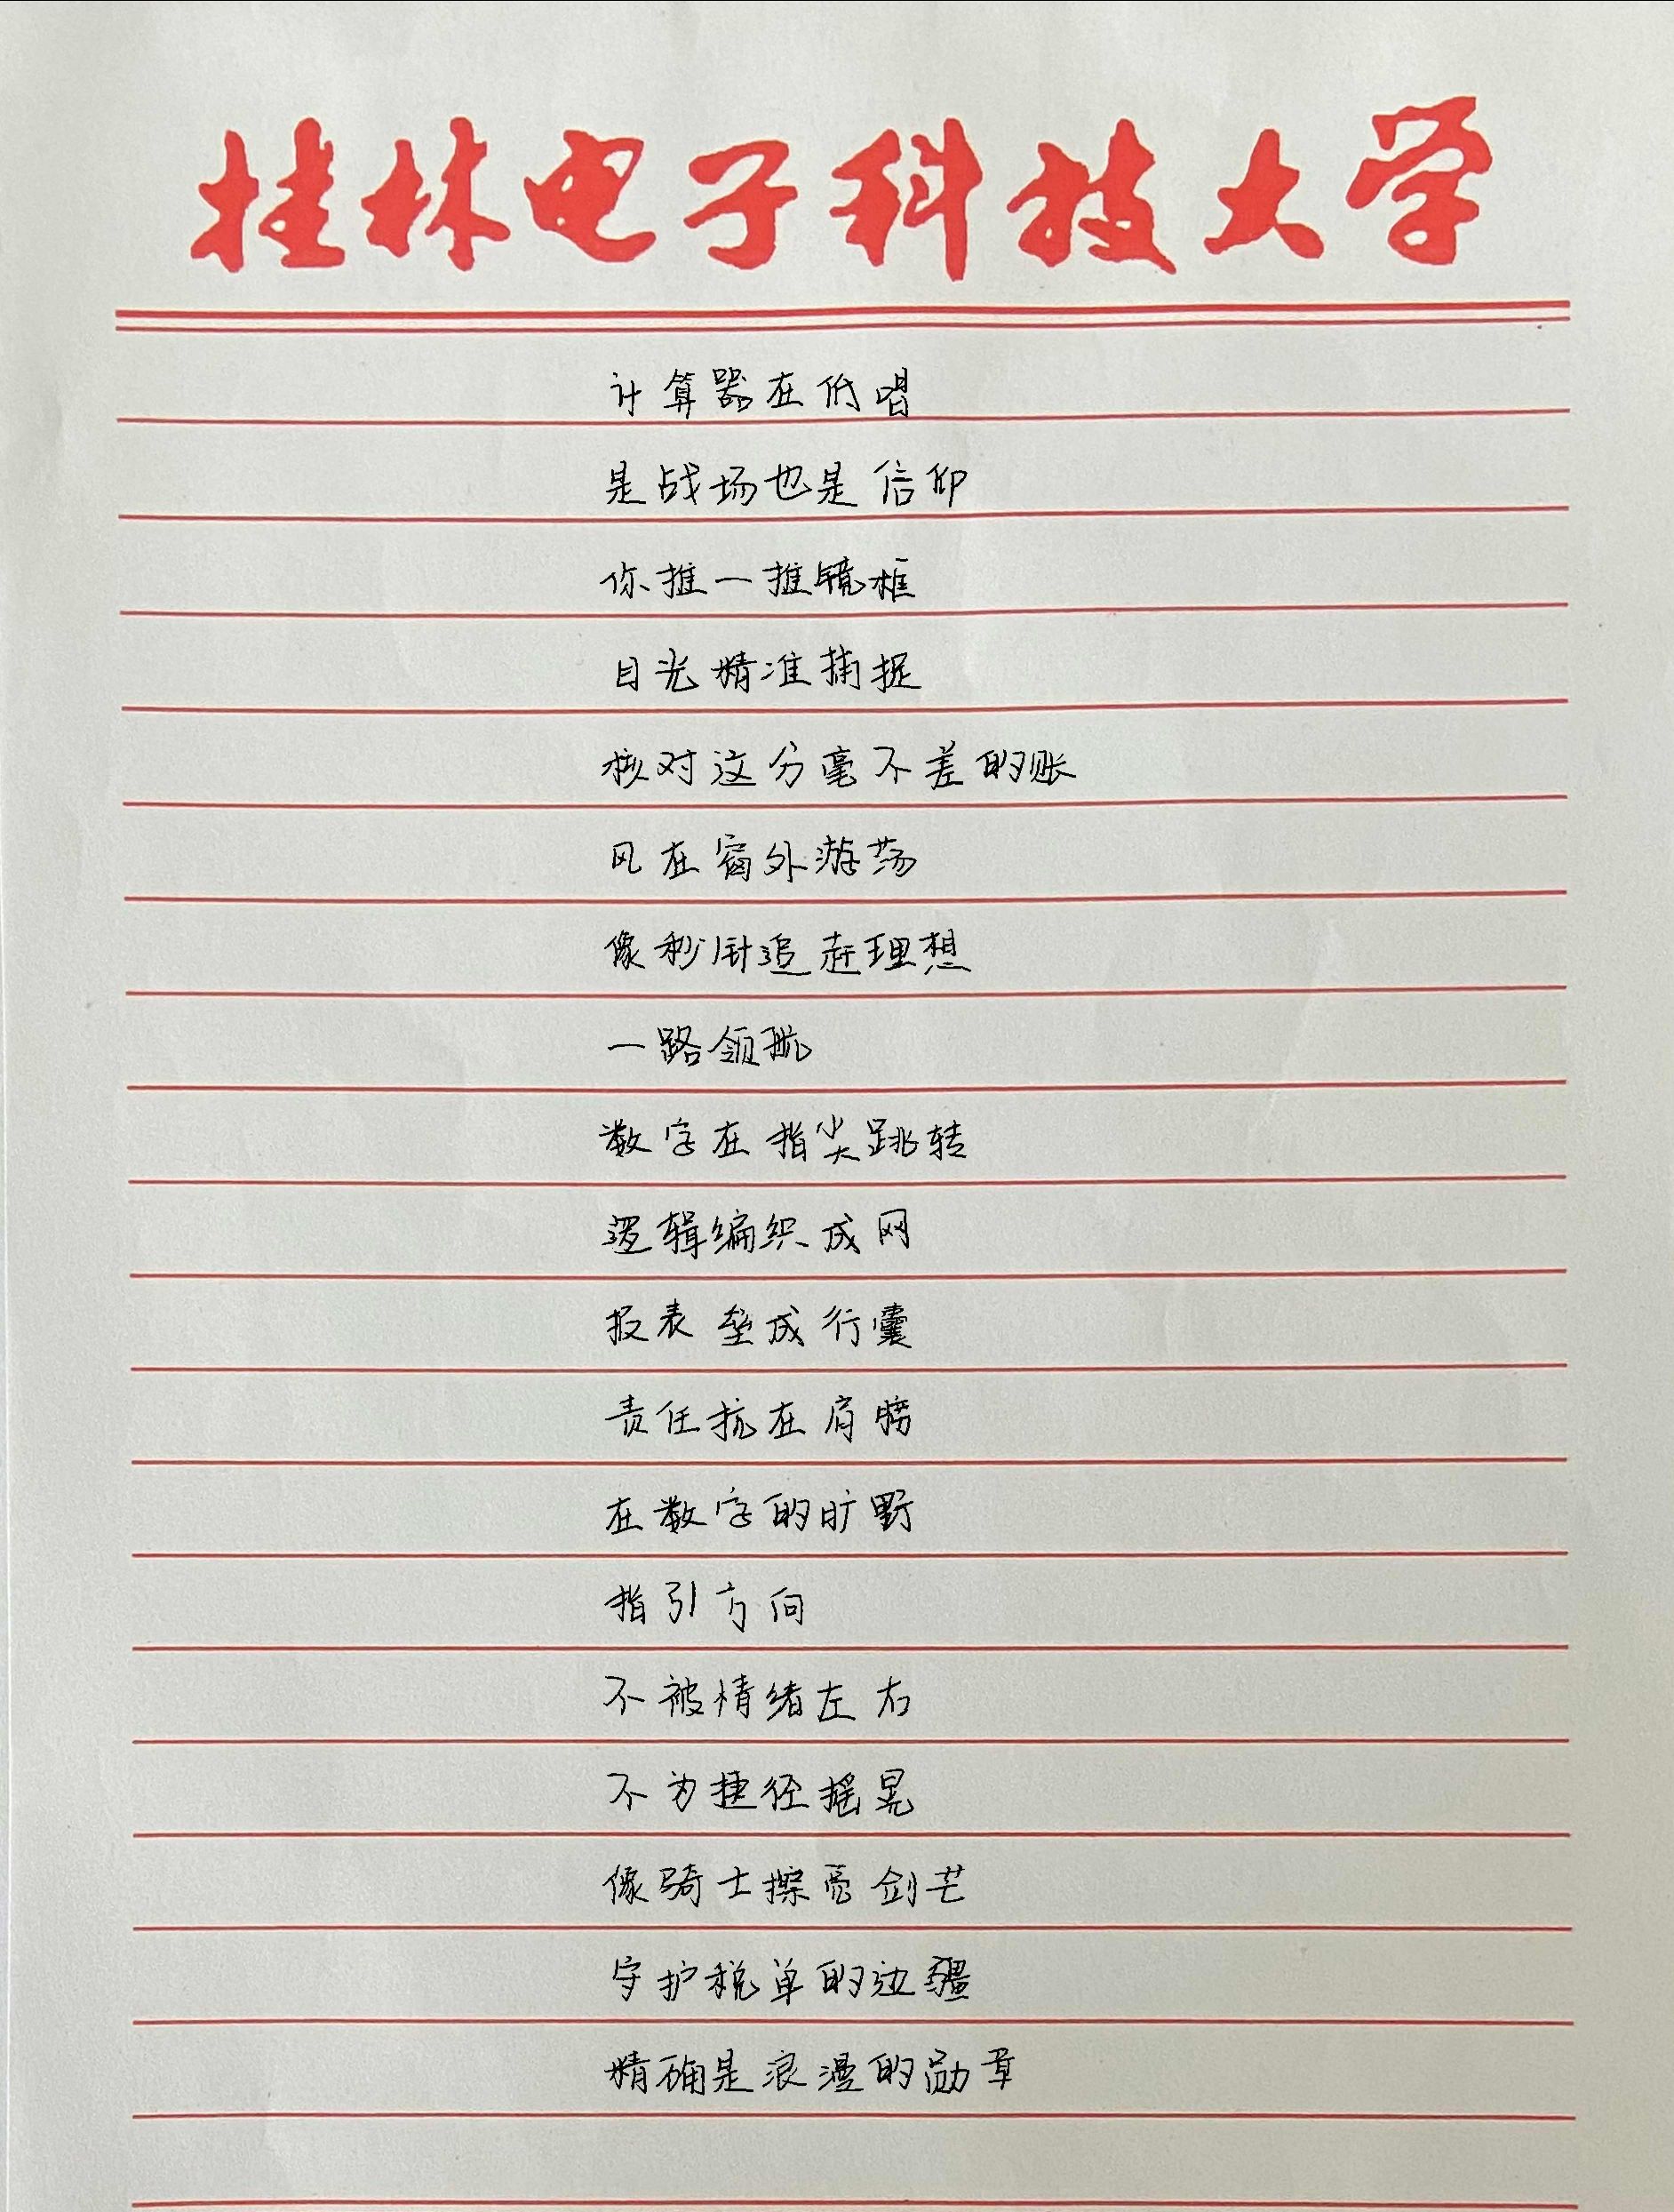 桂林电子科技大学
计算器在低唱
是战场也是信仰
你推一推镜框
目光精准捕捉
核对这分毫不差的账
风在窗外游荡
像秒针追赶理想
一路领航
数字在指尖跳转
逻辑编织成网
报表垒成行囊
责任抗在肩膀
在数字的旷野
指引方向
不被情绪左右
不为捷径摇晃
像骑士擦亮剑芒
守护税单的边疆
精确是浪漫的勋章